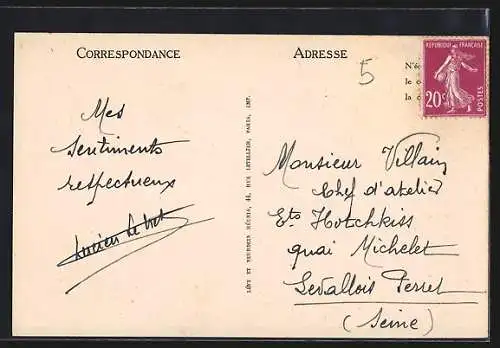 CORRESPONDANCE
ADRESSE
5
RÉPUBLIQUE FRANÇAISE
20c
POSTES
Mes
sentiments
respectueux
Lucien
LÉVY ET NEURDEIN RÉUNIS, 44, RUE LETELLIER, PARIS, IMP.
Monsieur Villain
Chef d'atelier
Ets Hotchkiss
quai Michelet
Levallois Perret
(Seine)